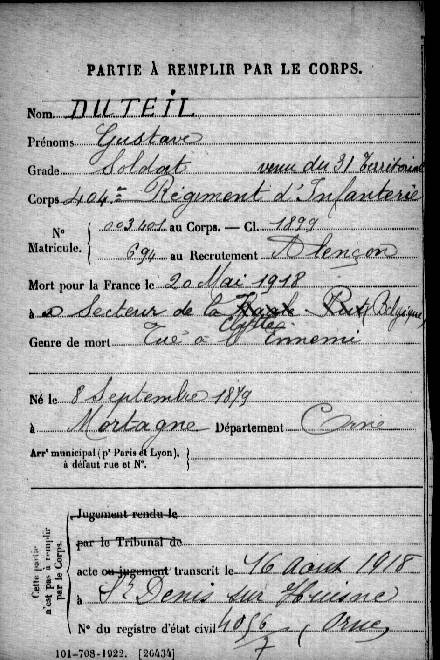 PARTIE À REMPLIR PAR LE CORPS.
Nom DUTEIL
Prénoms Gustave
Grade Soldat venu du 31 Territorial
Corps 404me Régiment d'Infanterie
N° Matricule. { 003401 au Corps. — Cl. 1899
694 au Recrutement Alençon
Mort pour la France le 20 Mai 1918
à Secteur de la Clytte Belgique
Genre de mort Tué à Ennemi
Né le 8 Septembre 1879
à Mortagne Département Orne
Arrt municipal (pr Paris et Lyon), à défaut rue et N°.
Cette partie n'est pas à remplir par le Corps.
Jugement rendu le
par le Tribunal de
acte ou jugement transcrit le 16 Août 1918
à St Denis sur Huisne
N° du registre d'état civil 4056/7 (Orne)
101-708-1922. [26434]